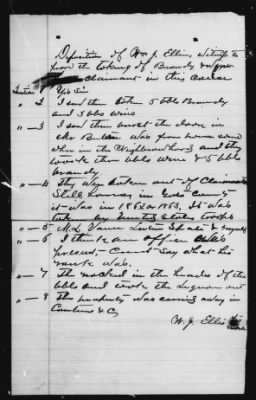 Deposition of Wm J. Ellis, witness to
from the taking of Brandy & Wines
Claimant in this cause
Inter 1 Yes Sir
" 2 I saw them take 5 bbls Brandy
and 3 bbls wine
" 3 I saw them burst the door in
Mr was from home around
when in the Neighborhood, and they
took three bbls wine & 5 bbls
brandy
" 4 They was taken out of Claimants
Still house in County
it was in 1862 or 1863. It was
taken by United States troops
" 5 M. L. Vann & myself
" 6 I think an officer was
present, Cannot say what his
rank was.
" 7 The knocked in the heads of the
bbls and took the Liquor out
" 8 The property was carried away in
Canteens &C
W. J. Ellis